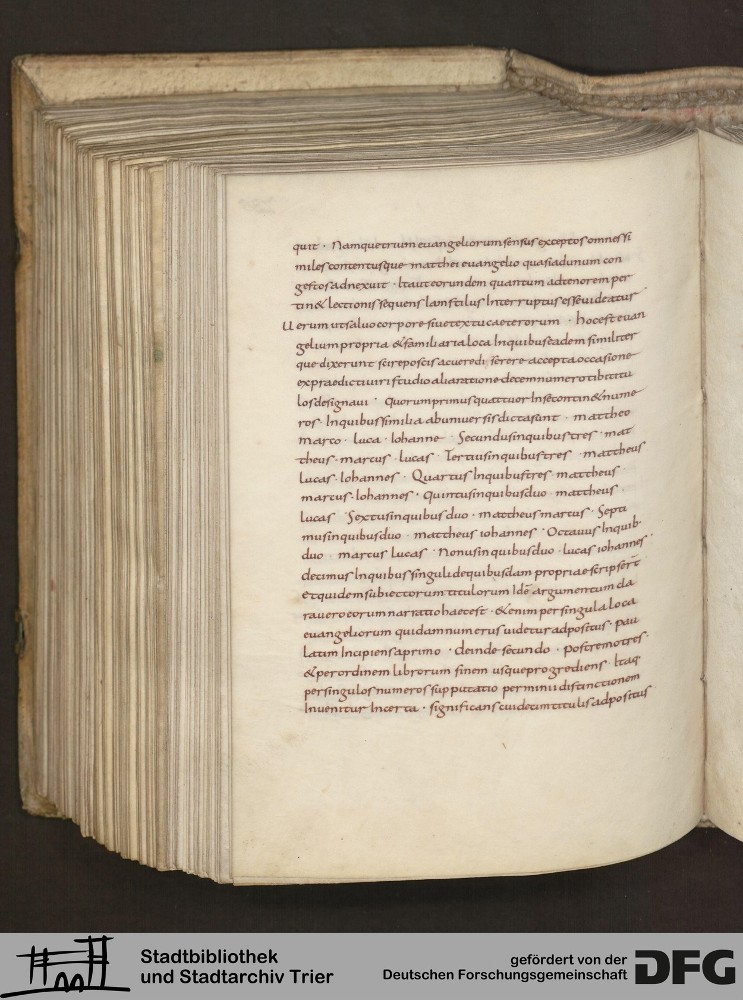 quit · Namquetrium euangeliorumsensus exceptos omnessi
miles contentusque matthei euangelio quasiadunum con
gestosadnexuit · Itaut eorundem quantum adtenorem per
tin& lectionis sequens iam stilus Interruptus esse uideatur
Uerum utsaluo corpore siue textu caeterorum · hocest euan
gelium propria & familiaria loca Inquibus eadem similiter
que dixerunt scire poscis acueredi serere accepta occasione
expraedicti uiri studio alia ratione decem numero tibi titu
los designaui · Quorum primus quattuor Inse contin& nume
ros · Inquibus similia ab uniuersis dicta sunt · mattheo
marco · luca · Iohanne · Secundus inquibus tres · mat
theus · marcus · lucas · Tertius inquibus tres · mattheus
lucas · Iohannes · Quartus Inquibus tres · mattheus
marcus · Iohannes · Quintus inquibus duo · mattheus ·
lucas Sextus inquibus duo · mattheus marcus · Septi
mus inquibus duo · mattheus iohannes · Octauus Inquib·
duo · marcus lucas · Nonus in quibus duo · lucas iohannes ·
decimus Inquibus singuli de quibusdam propriae scripsert̄
et quidem subiectorum titulorum Idē argumentum da
rauero eorum narratio haec est · & enim per singula loca
euangeliorum quidam numerus uidetur adpositus · pau
latim Incipiens aprimo · deinde secundo · postremo tres ·
& per ordinem librorum finem usque progrediens · Itaq·
per singulos numeros supputatio per minii distinctionem
Inuenitur Incerta · significans cui decim titulis adpositus
Stadtbibliothek
und Stadtarchiv Trier
gefördert von der
Deutschen Forschungsgemeinschaft
DFG